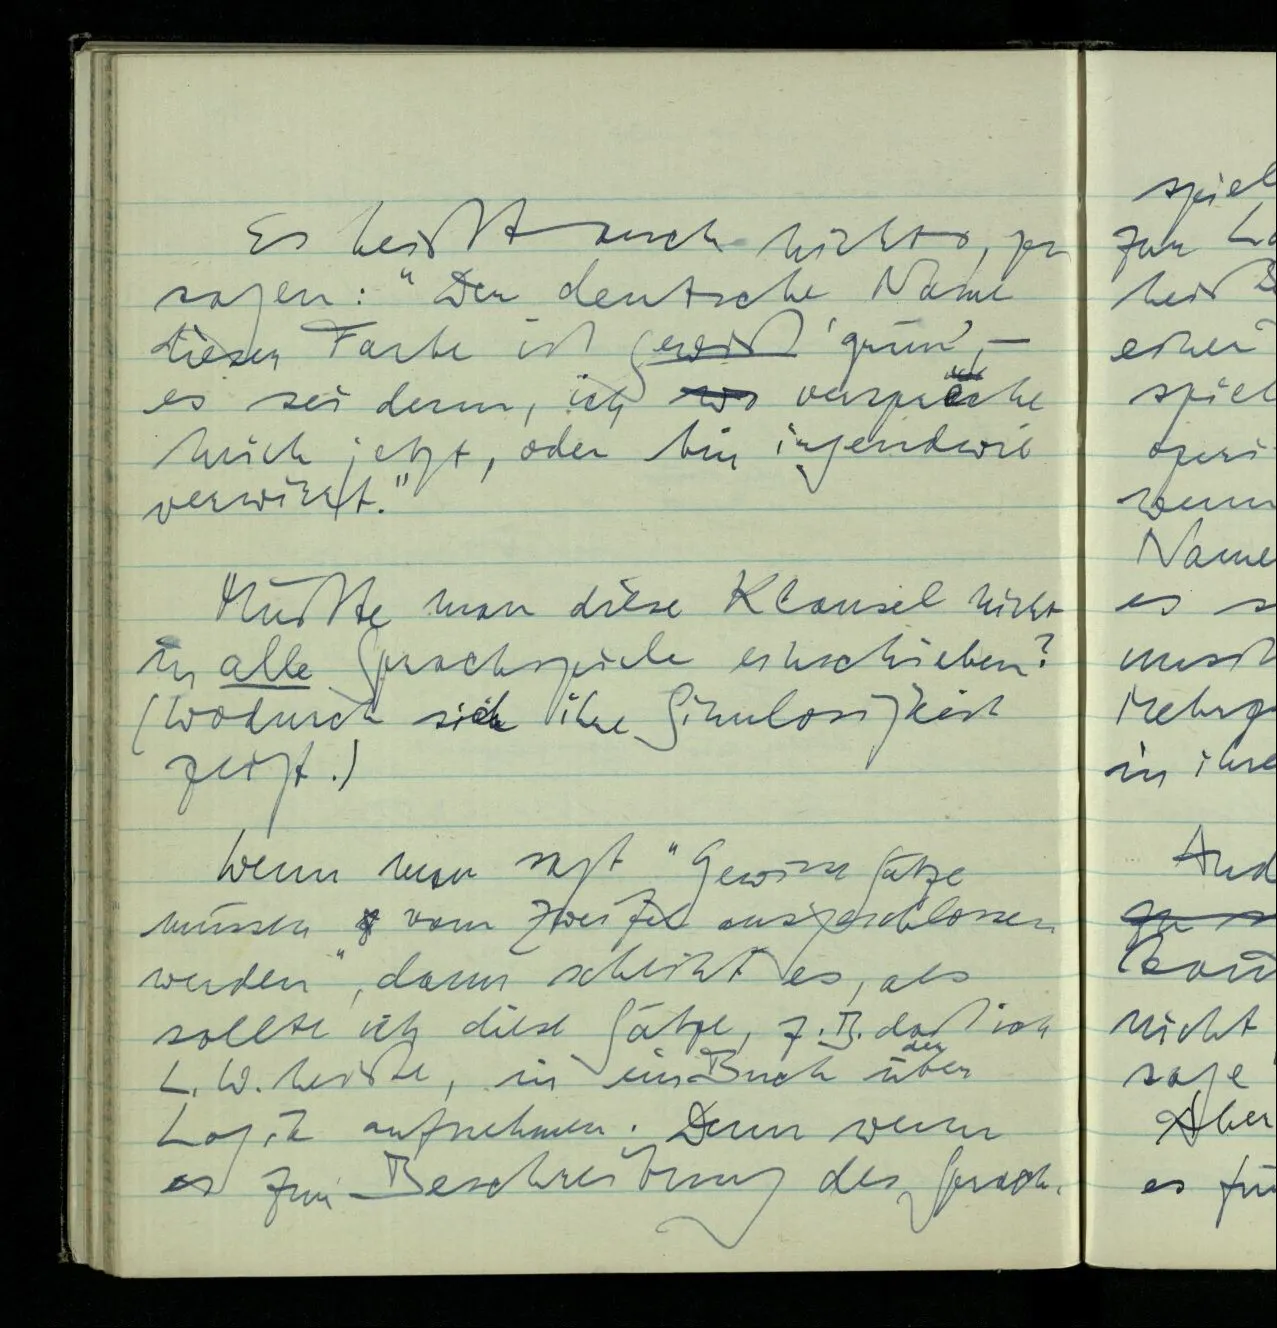 Es heißt auch nichts, zu
sagen: "Der deutsche Name
dieser Farbe ist gewiß 'grün', —
es sei denn, ich verspreche
mich jetzt, oder bin irgendwie
verwirrt."
Müßte man diese Klausel nicht
in alle Sprachspiele einschieben?
(Wodurch sich ihre Sinnlosigkeit
zeigt.)
Wenn man sagt "Gewisse Sätze
müssen vom Zweifel ausgeschlossen
werden", dann scheint es, als
sollte ich diese Sätze, z.B. daß ich
L.W. heiße, in ein Buch über der
Logik aufnehmen. Denn wenn
es zur Beschreibung des Sprach-
spiel
zur Lo
heiß
einer
spiel
operi
wenn
Name
es s
in ihre
And
nicht
sage
Aber
es für